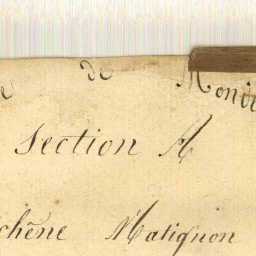 de
Section A
chêne Matignon